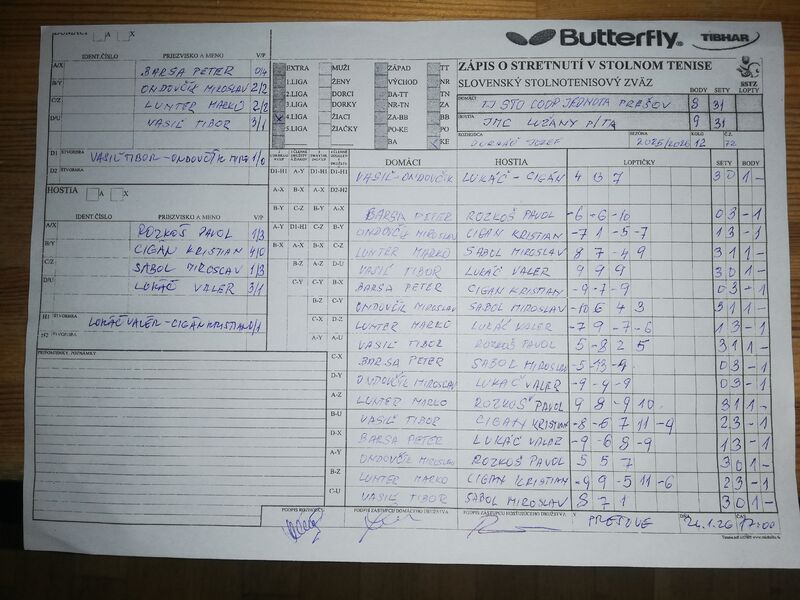 Butterfly TIBHAR
DOMÁCI A X
IDENT.ČÍSLO PRIEZVISKO A MENO V/P
A/X BARSA PETER 0/4
B/Y ONDOVČÍK MIROSLAV 2/2
C/Z LUNTER MARKO 2/2
D/U VASIĽ TIBOR 3/1
D1 ŠTVORHRA VASIĽ TIBOR-ONDOVČÍK MIRO 1/0
D2 ŠTVORHRA
HOSTIA A X
IDENT.ČÍSLO PRIEZVISKO A MENO V/P
A/X ROZKOŠ PAVOL 1/3
B/Y CIGÁN KRISTIAN 4/0
C/Z SABOL MIROSLAV 1/3
D/U LUKÁČ VALER 3/1
H1 ŠTVORHRA LUKÁČ VALÉR-CIGÁN KRISTIAN 0/1
H2 ŠTVORHRA
PRIPOMIENKY, POZNÁMKY
EXTRA MUŽI ZÁPAD TT
1.LIGA ŽENY VÝCHOD NR
2.LIGA DORCI BA-TT TN
3.LIGA DORKY NR-TN ZA
X 4.LIGA ŽIACI ZA-BB BB
5.LIGA ŽIAČKY PO-KE PO
BA KE
ZÁPIS O STRETNUTÍ V STOLNOM TENISE
SLOVENSKÝ STOLNOTENISOVÝ ZVÄZ
SSTZ
BODY SETY LOPTY
DOMÁCI TJ STO COOP JEDNOTA PREŠOV 8 31
HOSTIA JMC LUŽANY P/TA 9 31
ROZHODCA JOZEF SEZÓNA 2025/2026 KOLO 12 Č.Z. 72
DOMÁCI HOSTIA LOPTIČKY SETY BODY
D1-H1 A-Y D1-H1 D1-H1 D2-H2 VASIĽ-ONDOVČÍK LUKÁČ-CIGÁN 4 13 7 3 0 1 -
A-X BARSA PETER ROZKOŠ PAVOL -6 -6 -10 0 3 - 1
ONDOVČÍK MIROSLAV CIGÁN KRISTIAN -7 1 -5 -7 1 3 - 1
LUNTER MARKO SABOL MIROSLAV 8 7 -4 9 3 1 1 -
D-U VASIĽ TIBOR LUKÁČ VALER 9 9 9 3 0 1 -
B-X BARSA PETER CIGÁN KRISTIAN -9 -7 -9 0 3 - 1
ONDOVČÍK MIROSLAV SABOL MIROSLAV -10 6 4 3 3 1 1 -
LUNTER MARKO LUKÁČ VALER -7 9 -7 -6 1 3 - 1
VASIĽ TIBOR ROZKOŠ PAVOL 5 -8 2 5 3 1 1 -
C-X BARSA PETER SABOL MIROSLAV -5 -13 -9 0 3 - 1
D-Y ONDOVČÍK MIROSLAV LUKÁČ VALER -9 -4 -9 0 3 - 1
A-Z LUNTER MARKO ROZKOŠ PAVOL 9 8 -9 10 3 1 1 -
B-U VASIĽ TIBOR CIGÁN KRISTIAN -8 -6 7 11 -9 2 3 - 1
D-X BARSA PETER LUKÁČ VALER -9 -6 8 -9 1 3 - 1
A-Y ONDOVČÍK MIROSLAV ROZKOŠ PAVOL 5 5 7 3 0 1 -
B-Z LUNTER MARKO CIGÁN KRISTIAN -9 9 -5 11 -6 2 3 - 1
C-U VASIĽ TIBOR SABOL MIROSLAV 8 7 1 3 0 1 -
PODPIS ROZHODCU PODPIS ZÁSTUPCU DOMÁCEHO DRUŽSTVA PODPIS ZÁSTUPCU HOSŤUJÚCEHO DRUŽSTVA V PREŠOVE DŇA 24.1.26 ČAS 17:00